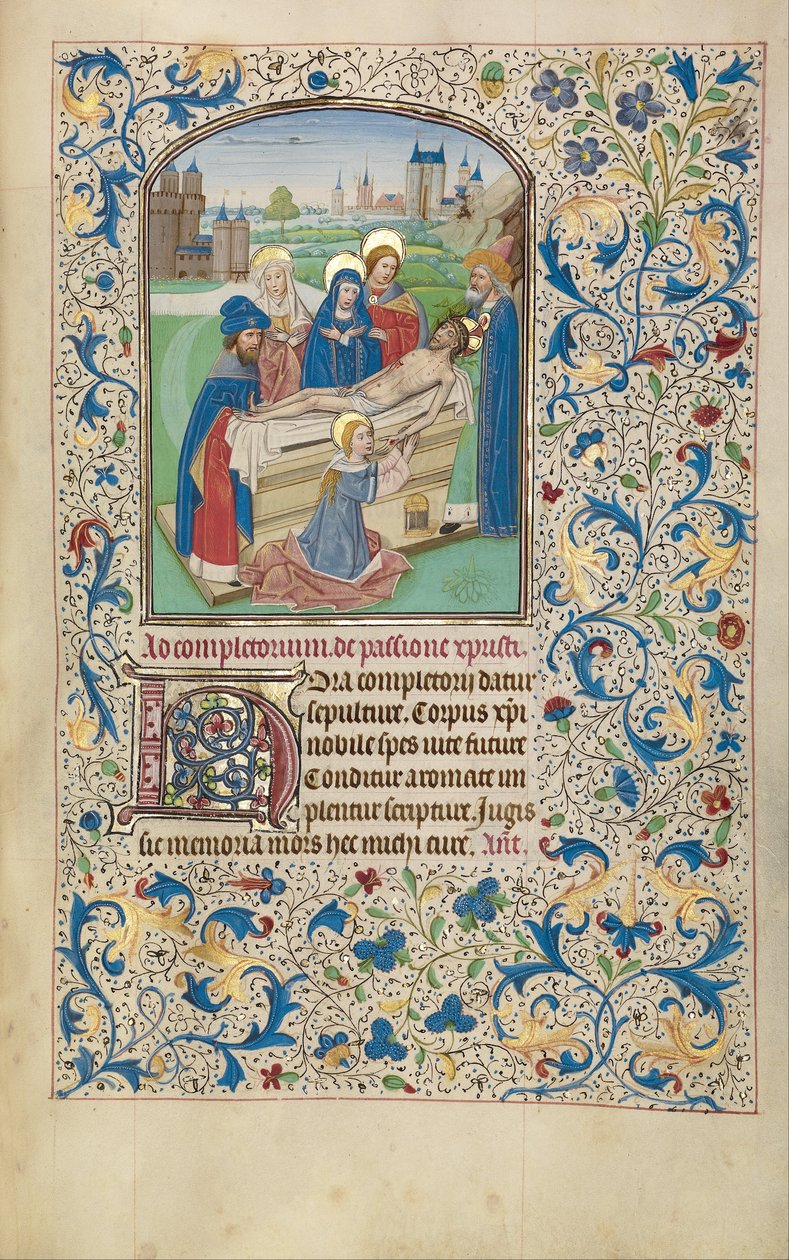 Ad completorium. de passione xpristi.
Hora completorij datur
sepulture. Corpus xp̄i
nobile spes uite future
Conditur aromate im
plentur scripture. Jugis
sit memoria mors hec michi cure. An̄t.